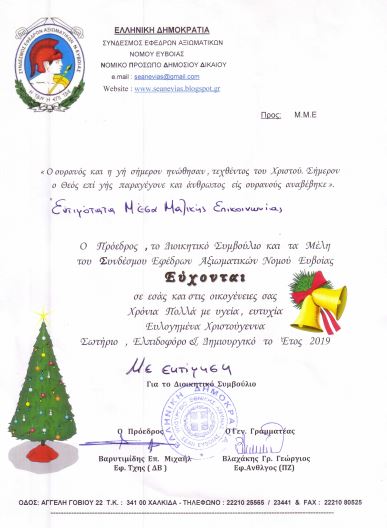 ΕΛΛΗΝΙΚΗ ΔΗΜΟΚΡΑΤΙΑ
ΣΥΝΔΕΣΜΟΣ ΕΦΕΔΡΩΝ ΑΞΙΩΜΑΤΙΚΩΝ
ΝΟΜΟΥ ΕΥΒΟΙΑΣ
ΝΟΜΙΚΟ ΠΡΟΣΩΠΟ ΔΗΜΟΣΙΟΥ ΔΙΚΑΙΟΥ
e.mail : seanevias@gmail.com
Website : www.seanevias.blogspot.gr
ΣΥΝΔΕΣΜΟΣ ΕΦΕΔΡΩΝ ΑΞΙΩΜΑΤΙΚΩΝ Ν.ΕΥΒΟΙΑΣ
Προς: Μ.Μ.Ε
« Ο ουρανός και η γή σήμερον ηνώθησαν , τεχθέντος του Χριστού. Σήμερον
ο Θεός επί γής παραγέγονε και άνθρωπος είς ουρανούς αναβέβηκε ».
Εντιμότατα Μέσα Μαζικής Επικοινωνίας
Ο Πρόεδρος , το Διοικητικό Συμβούλιο και τα Μέλη
του Συνδέσμου Εφέδρων Αξιωματικών Νομού Ευβοίας
Εύχονται
σε εσάς και στις οικογένειες σας
Χρόνια Πολλά με υγεία , ευτυχία
Ευλογημένα Χριστούγεννα
Σωτήριο , Ελπιδοφόρο & Δημιουργικό το Έτος 2019
Με εκτίμηση
Για το Διοικητικό Συμβούλιο
ΕΛΛΗΝΙΚΗ ΔΗΜΟΚΡΑΤΙΑ
Ο Πρόεδρος Ο Γεν. Γραμματέας
Βαρυτιμίδης Επ. Μιχαήλ Βλαχάκης Γρ. Γεώργιος
Εφ. Τχης ( ΔΒ ) Εφ.Ανθλγος (ΠΖ)
ΟΔΟΣ: ΑΓΓΕΛΗ ΓΟΒΙΟΥ 22 Τ.Κ. : 341 00 ΧΑΛΚΙΔΑ - ΤΗΛΕΦΩΝΟ : 22210 25565 / 23441 & FAX : 22210 80525